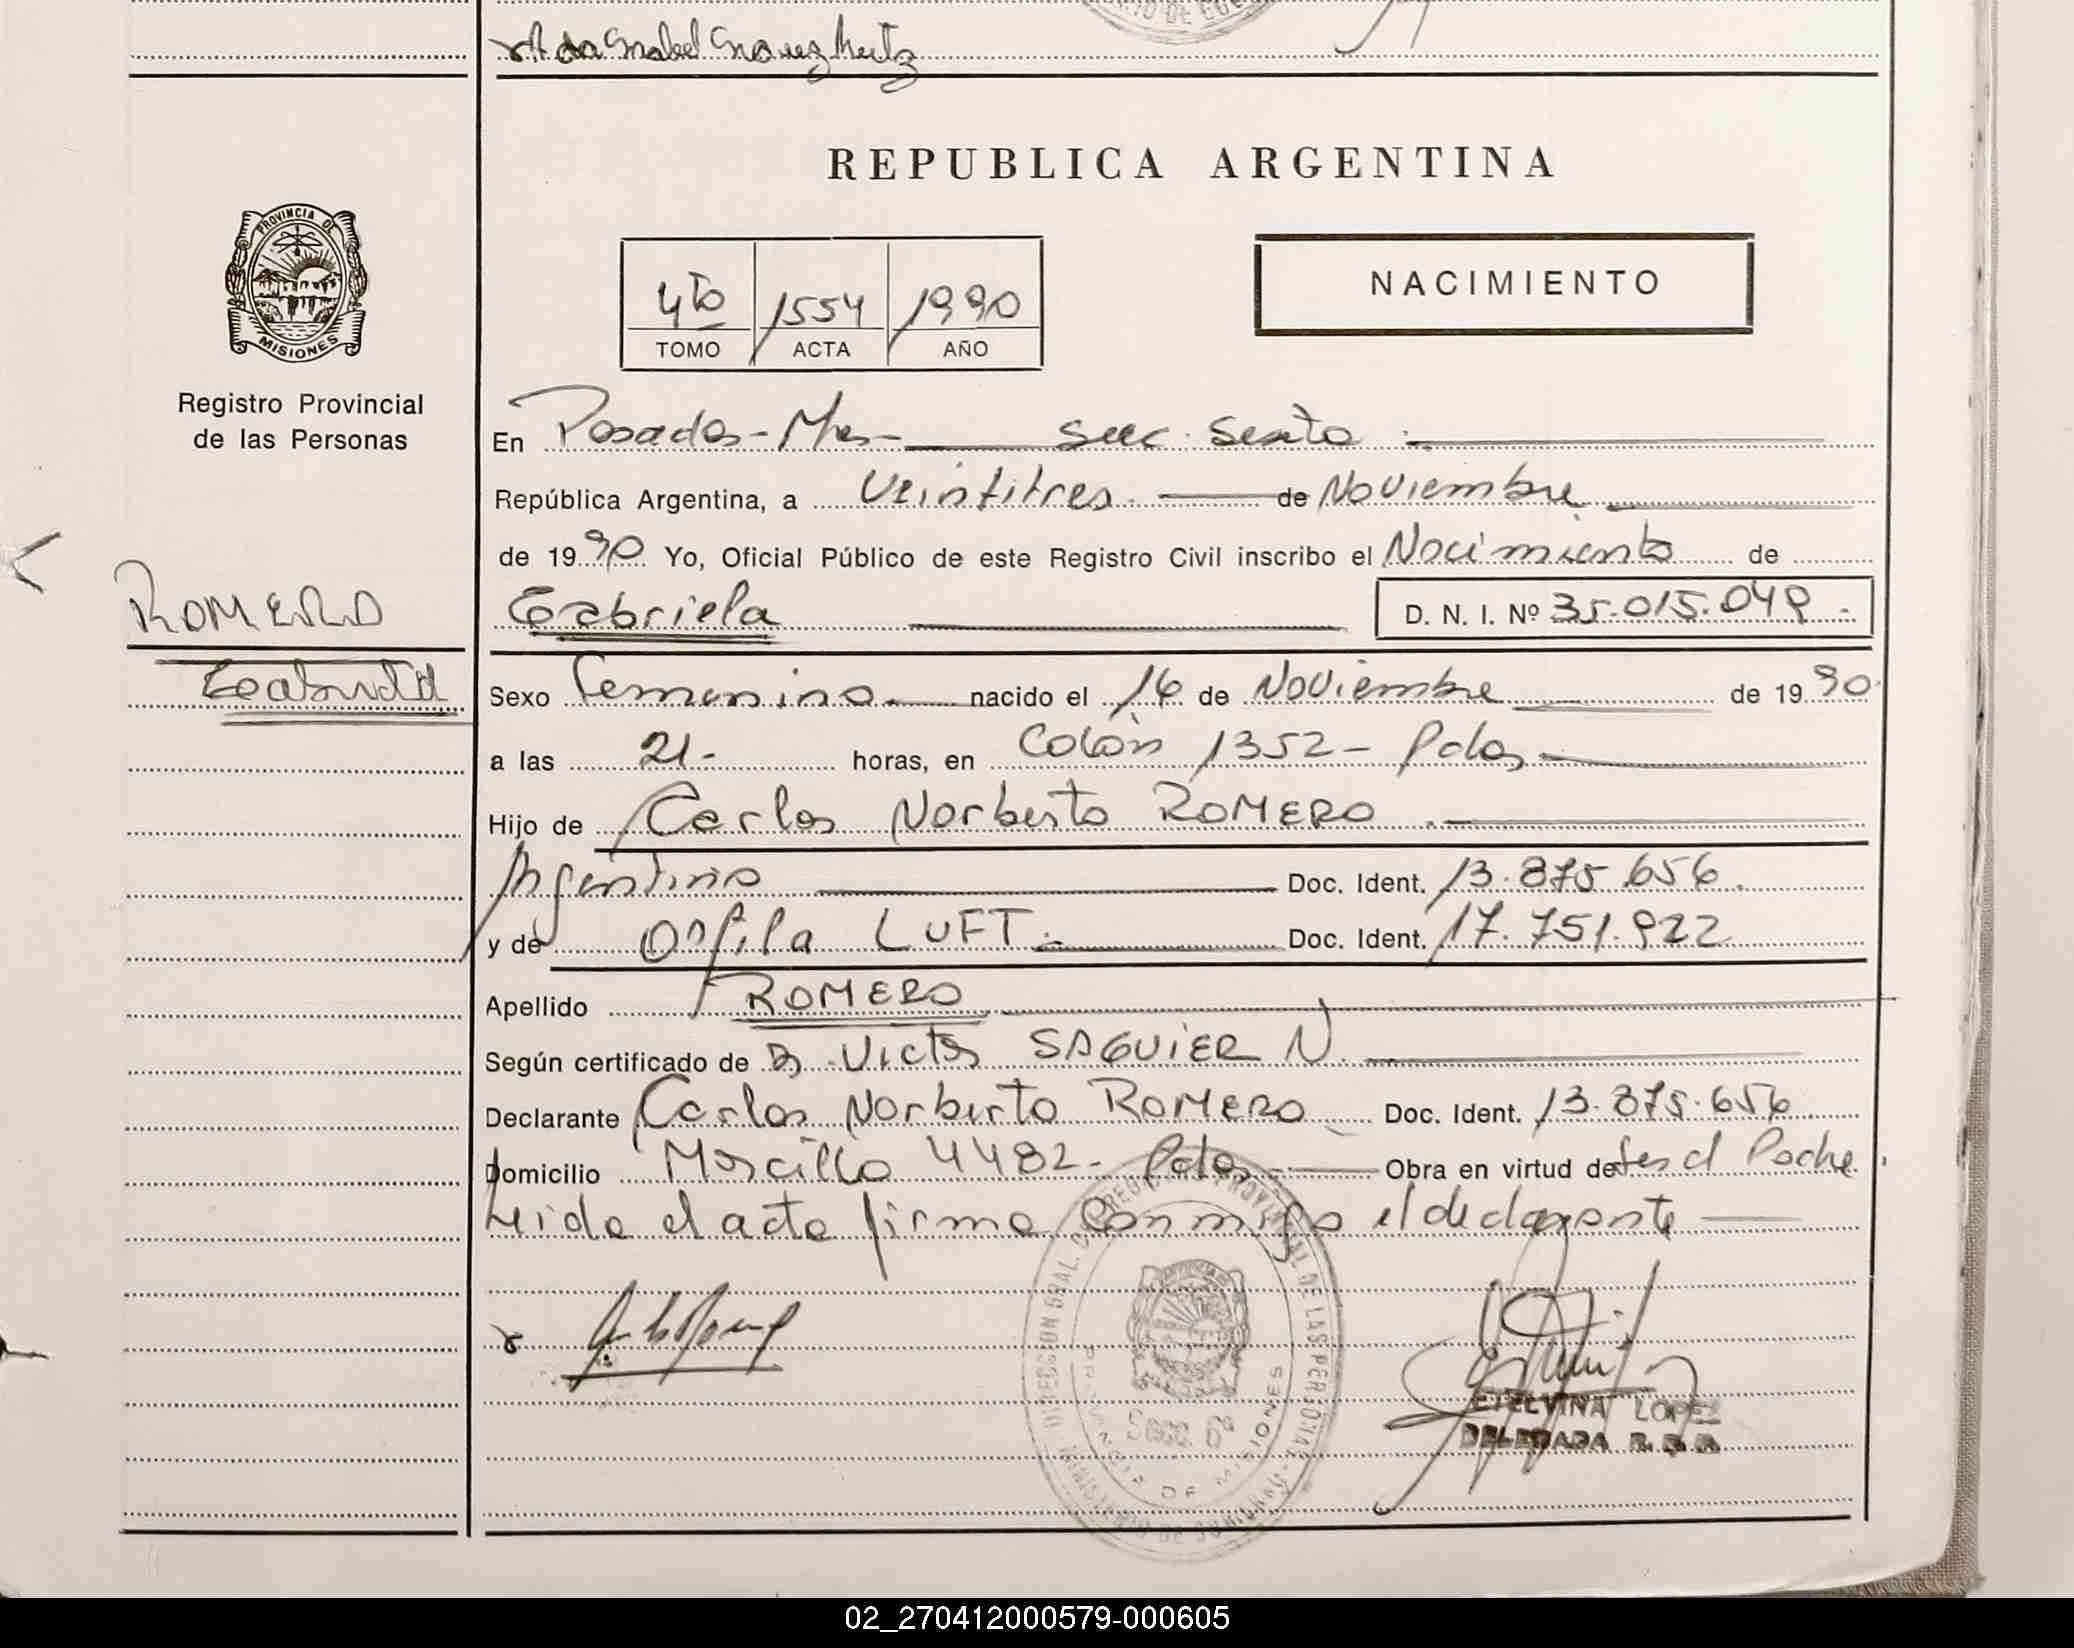 Registro Provincial
de las Personas
PROVINCIA DE
MISIONES
ROMERO
Gabriela
REPUBLICA ARGENTINA
NACIMIENTO
4to 1554 1990
TOMO ACTA AÑO
En Posadas - Mnes - Secc. Sexta
República Argentina, a Veintitres de Noviembre
de 1990 Yo, Oficial Público de este Registro Civil inscribo el Nacimiento de
Gabriela D. N. I. Nº 35.015.049
Sexo Femenino nacido el 16 de Noviembre de 1990
a las 21 horas, en Colón 1352 - Pdas
Hijo de Carlos Norberto ROMERO
Argentino Doc. Ident. 13.875.656
y de LUFT Doc. Ident. 17.751.922
Apellido ROMERO
Según certificado de Dr. Victor SAGUIER N
Declarante Carlos Norberto ROMERO Doc. Ident. 13.875.656
Domicilio 4482 - Pdas Obra en virtud de Ser el Padre
Leida el acta firma conmigo el declarante
DIRECCION GRAL. DE REGISTRO PROVINCIAL DE LAS PERSONAS
PROVINCIA DE MISIONES
Secc. 6º
ETELVINA LOPEZ
DELEGADA R. P. P.
02_270412000579-000605